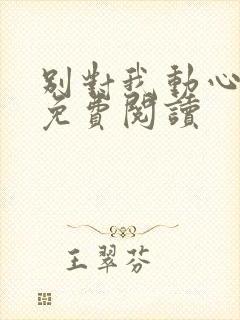 別對我動心
免費閱讀
王翠芬